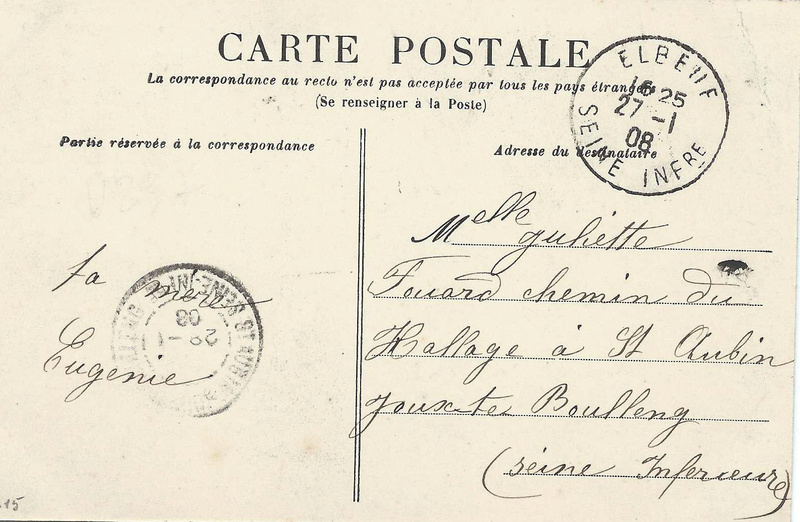 CARTE POSTALE
La correspondance au recto n'est pas acceptée par tous les pays étrangers
(Se renseigner à la Poste)
ELBEUF
16 25
27 -1
08
SEINE INFRE
Partie réservée à la correspondance
ta mere
Eugenie
28 -1
08
SEINE-INF
Adresse du destinataire
Melle Juliette
Touard chemin du
Hallage à St Aubin
Jouxte Boulleng
(seine Inferieure)
.15